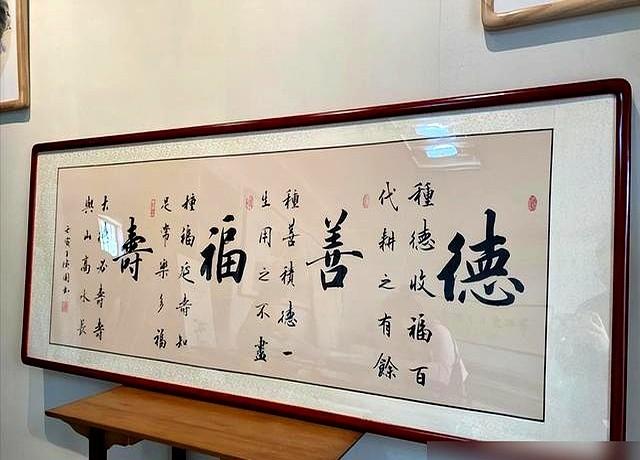 德
種德收福百
代耕之有餘
善
種善積德一
生用之不盡
福
種福延壽知
足常樂多福
壽
大德必壽壽
與山高水長
壬寅